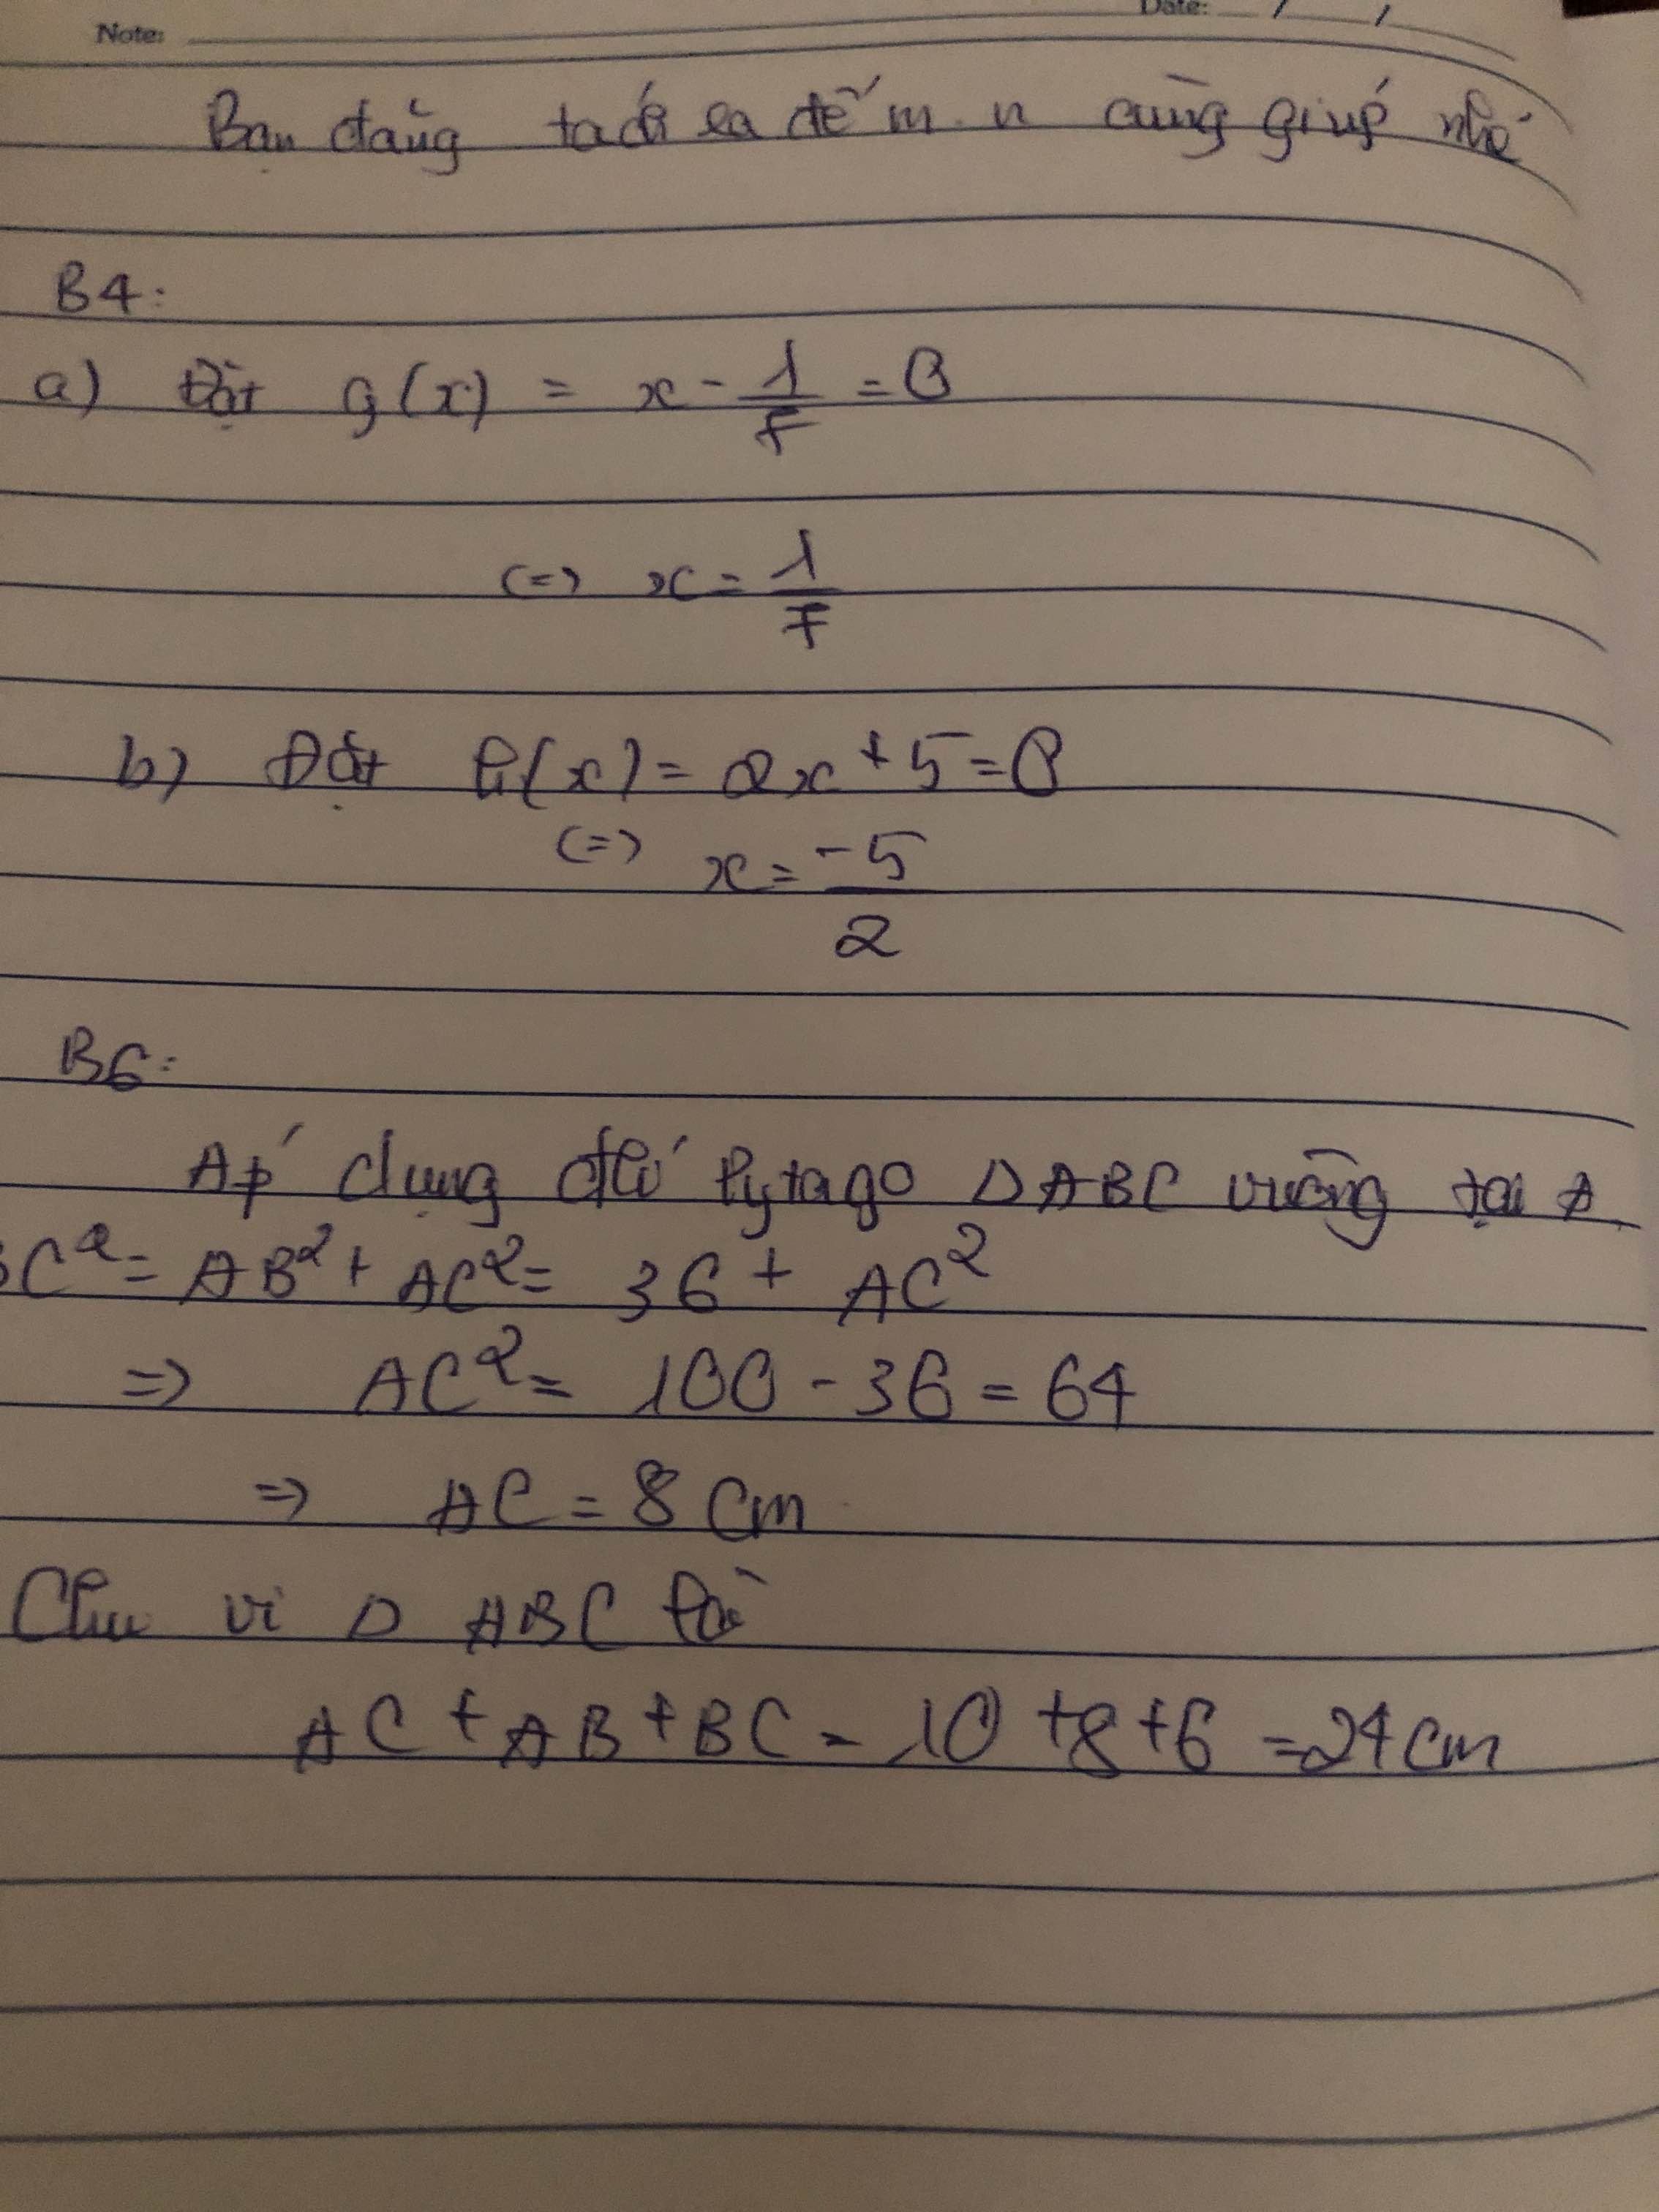 Note:
Date: / /
Bạn đăng tách ra để m.n cùng giúp nhé
B4:
a) Đặt g(x) = x - 1/7 = 0
<=> x = 1/7
b) Đặt h(x) = 2x + 5 = 0
<=> x = -5/2
B6:
Áp dụng đlí Pytago Δ ABC vuông tại A
BC² = AB² + AC² = 36 + AC²
=> AC² = 100 - 36 = 64
=> AC = 8 cm
Chu vi Δ ABC là
AC + AB + BC = 10 + 8 + 6 = 24 cm